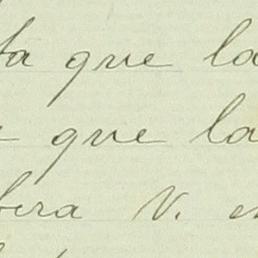 ta que la
que la
bera V. e